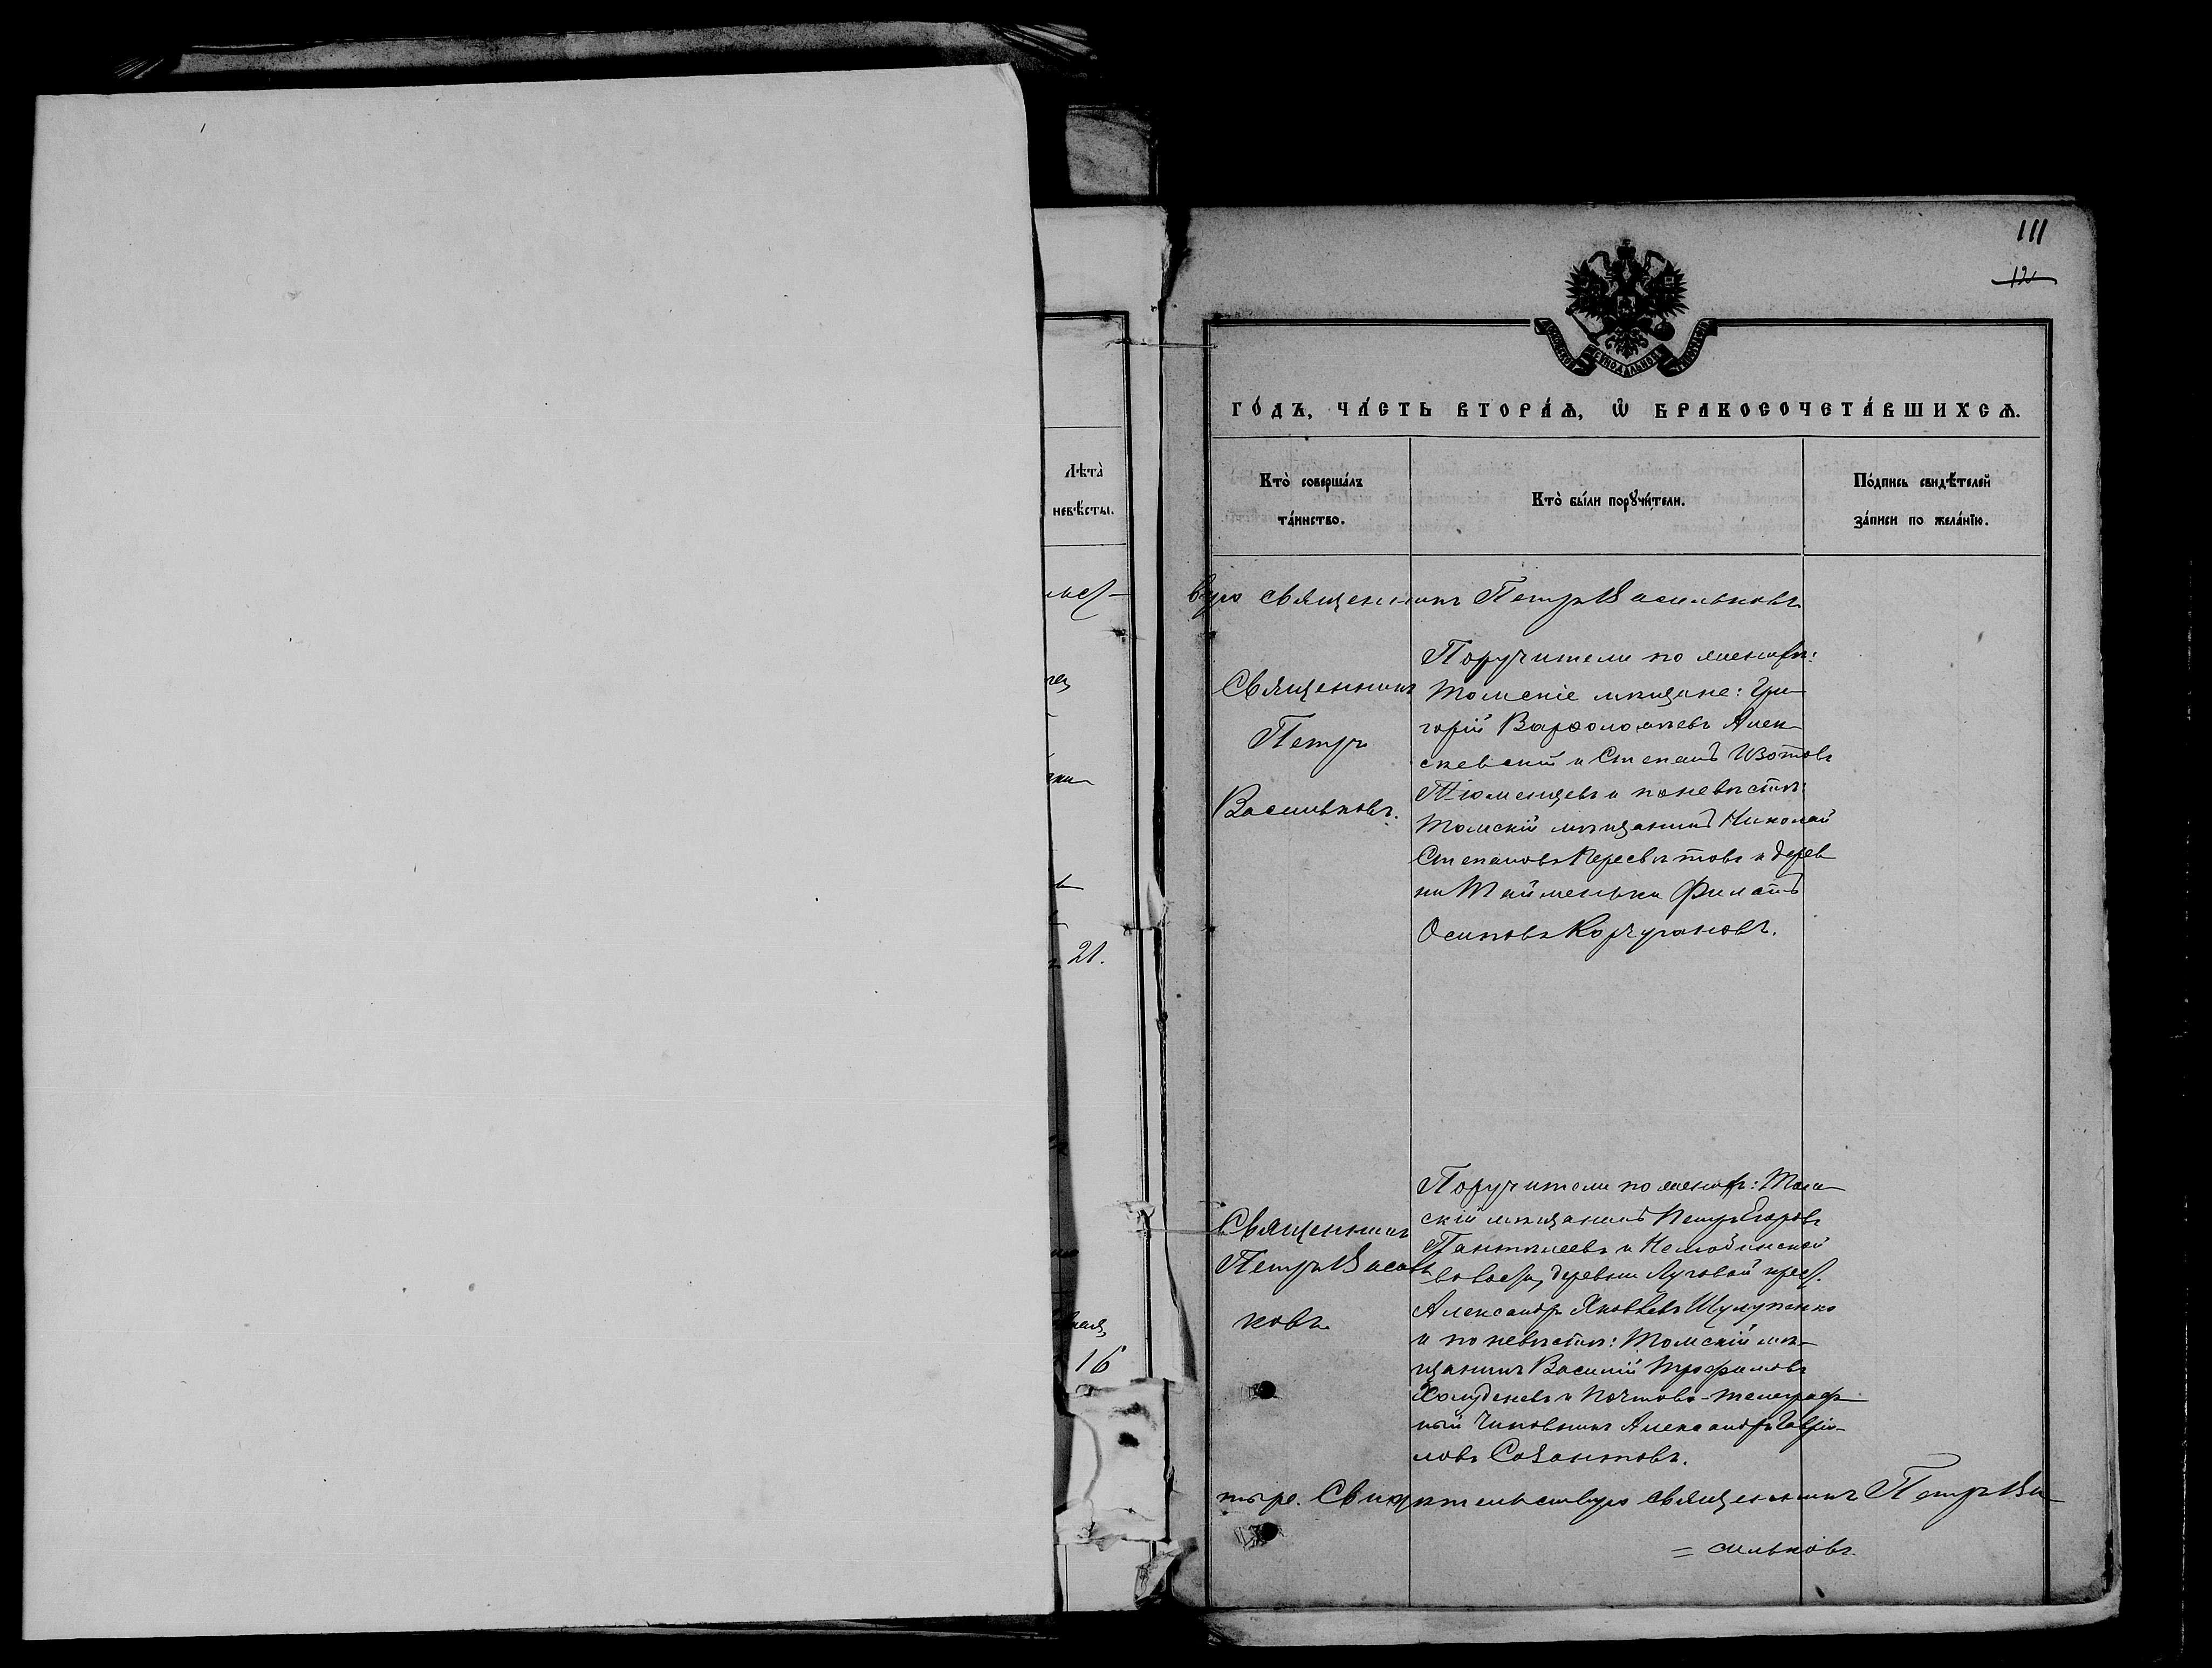 111
12
МОСКОВСКОЙ СѴНОДАЛЬНОЙ ТИПОГРАФІИ
Го́дъ, ча́сть втора́ѧ, ѡ҆ бракосочета́вшихсѧ.
Лѣта̀
невѣ́сты.
Кто̀ соверша́лъ
та́инство.
Кто̀ бы́ли порꙋчи́тели.
По́дпись свидѣ́телей
за́писи по жела́нїю.
вую священникъ Петръ Васильковъ
Священникъ
Петръ
Васильковъ.
Поручители по женихѣ:
Томскіе мѣщане: Гри-
горій Варѳоломѣевъ Алек-
скевскій и Степанъ Изотовъ
Тюменцевъ и по невѣстѣ:
Томскій мѣщанинъ Николай
Степановъ Пересвѣтовъ и дерев-
ни Тайменьки Филатъ
Осиповъ Корчугановъ.
21.
Священникъ
Петръ Василь
ковъ.
Поручители по женихѣ: Том-
скій мѣщанинъ Петръ Егоровъ
Пантелеевъ и Нелюбинской
волости, деревни Луговой крест.
Александръ Яковлевъ Шумупенко
и по невѣстѣ: Томскій мѣ-
щанинъ Василій Трофимовъ
Холуденевъ и Почтово-телеграф-
ный Чиновникъ Александръ Гаврі-
ловъ Созонтовъ.
16
тыре. Свидѣтельствую священникъ Петръ Ва-
= сильковъ.